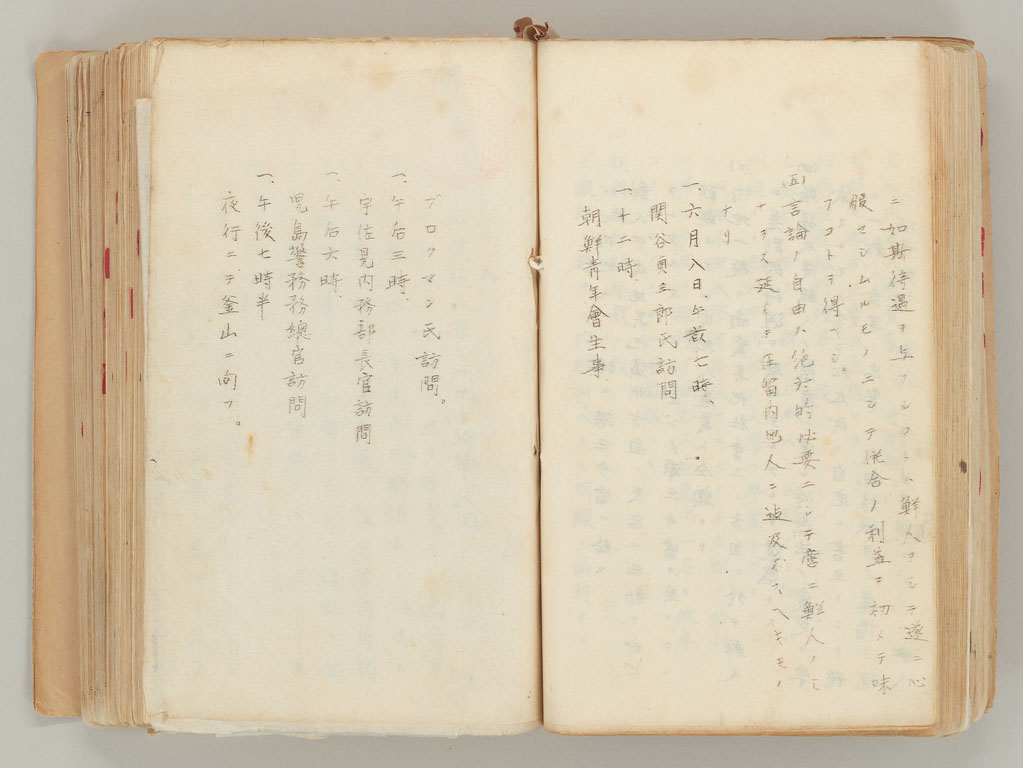 ニ如斯待遇ヲ与フルコトハ鮮人ヲシテ遂ニ心
服セシムルモノニシテ併合ノ利益ヲ初メテ味
フコトヲ得ベシ。
(五)言論ノ自由ハ絶対的必要ニシテ啻ニ鮮人ノミ
ナラス延イテ在留内地人ニ迄及ボスヘキモノ
ナリ
一、六月八日、午前七時、
関谷貞三郎氏訪問
一、十二時、
朝鮮青年會生事、
ブロックマン氏訪問。
一、午后三時、
宇佐見内務部長官訪問
一、午后六時、
児島警務務總官訪問
一、午後七時半
夜行ニテ釜山ニ向フ。